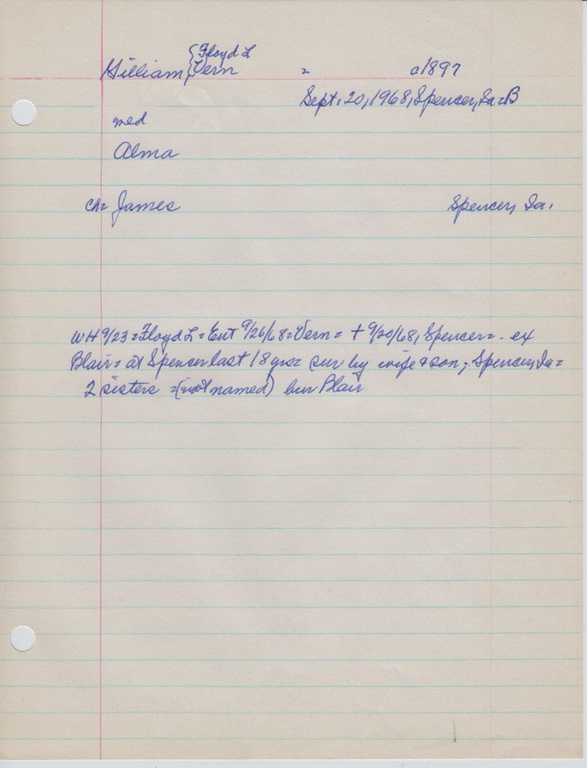 {Floyd L
Gilliam, {Vern = c1897
Sept. 20, 1968, Spencer, Ia = B
med
Alma
ch = James Spencer, Ia.
WH 9/23 = Floyd L = Ent 9/26/68 = Vern = + 9/20/68, Spencer = ex
Blair = at Spencer last 18 yrs = sur by wife & son; Spencer, Ia =
2 sisters = (not named) bur Blair